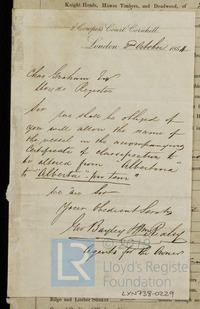 Knight Heads, Hawse Timbers, and Deadwood, of
2 Cowper's Court Cornhill
London 8 October 1864
Chas Graham Esq
Lloyds Register
Sir
you shall be obliged if
you will allow the name of
the vessel in the accompanying
Certificate of classification to
be altered from "Albertina"
to "Alberta"
We are Sir
Your Obedient Servts
Jno Bayley &
Agents for the Owners
© 2019
Lloyd's Register
Foundation
LR
Edge and Limber Strakes
LYN738-0229